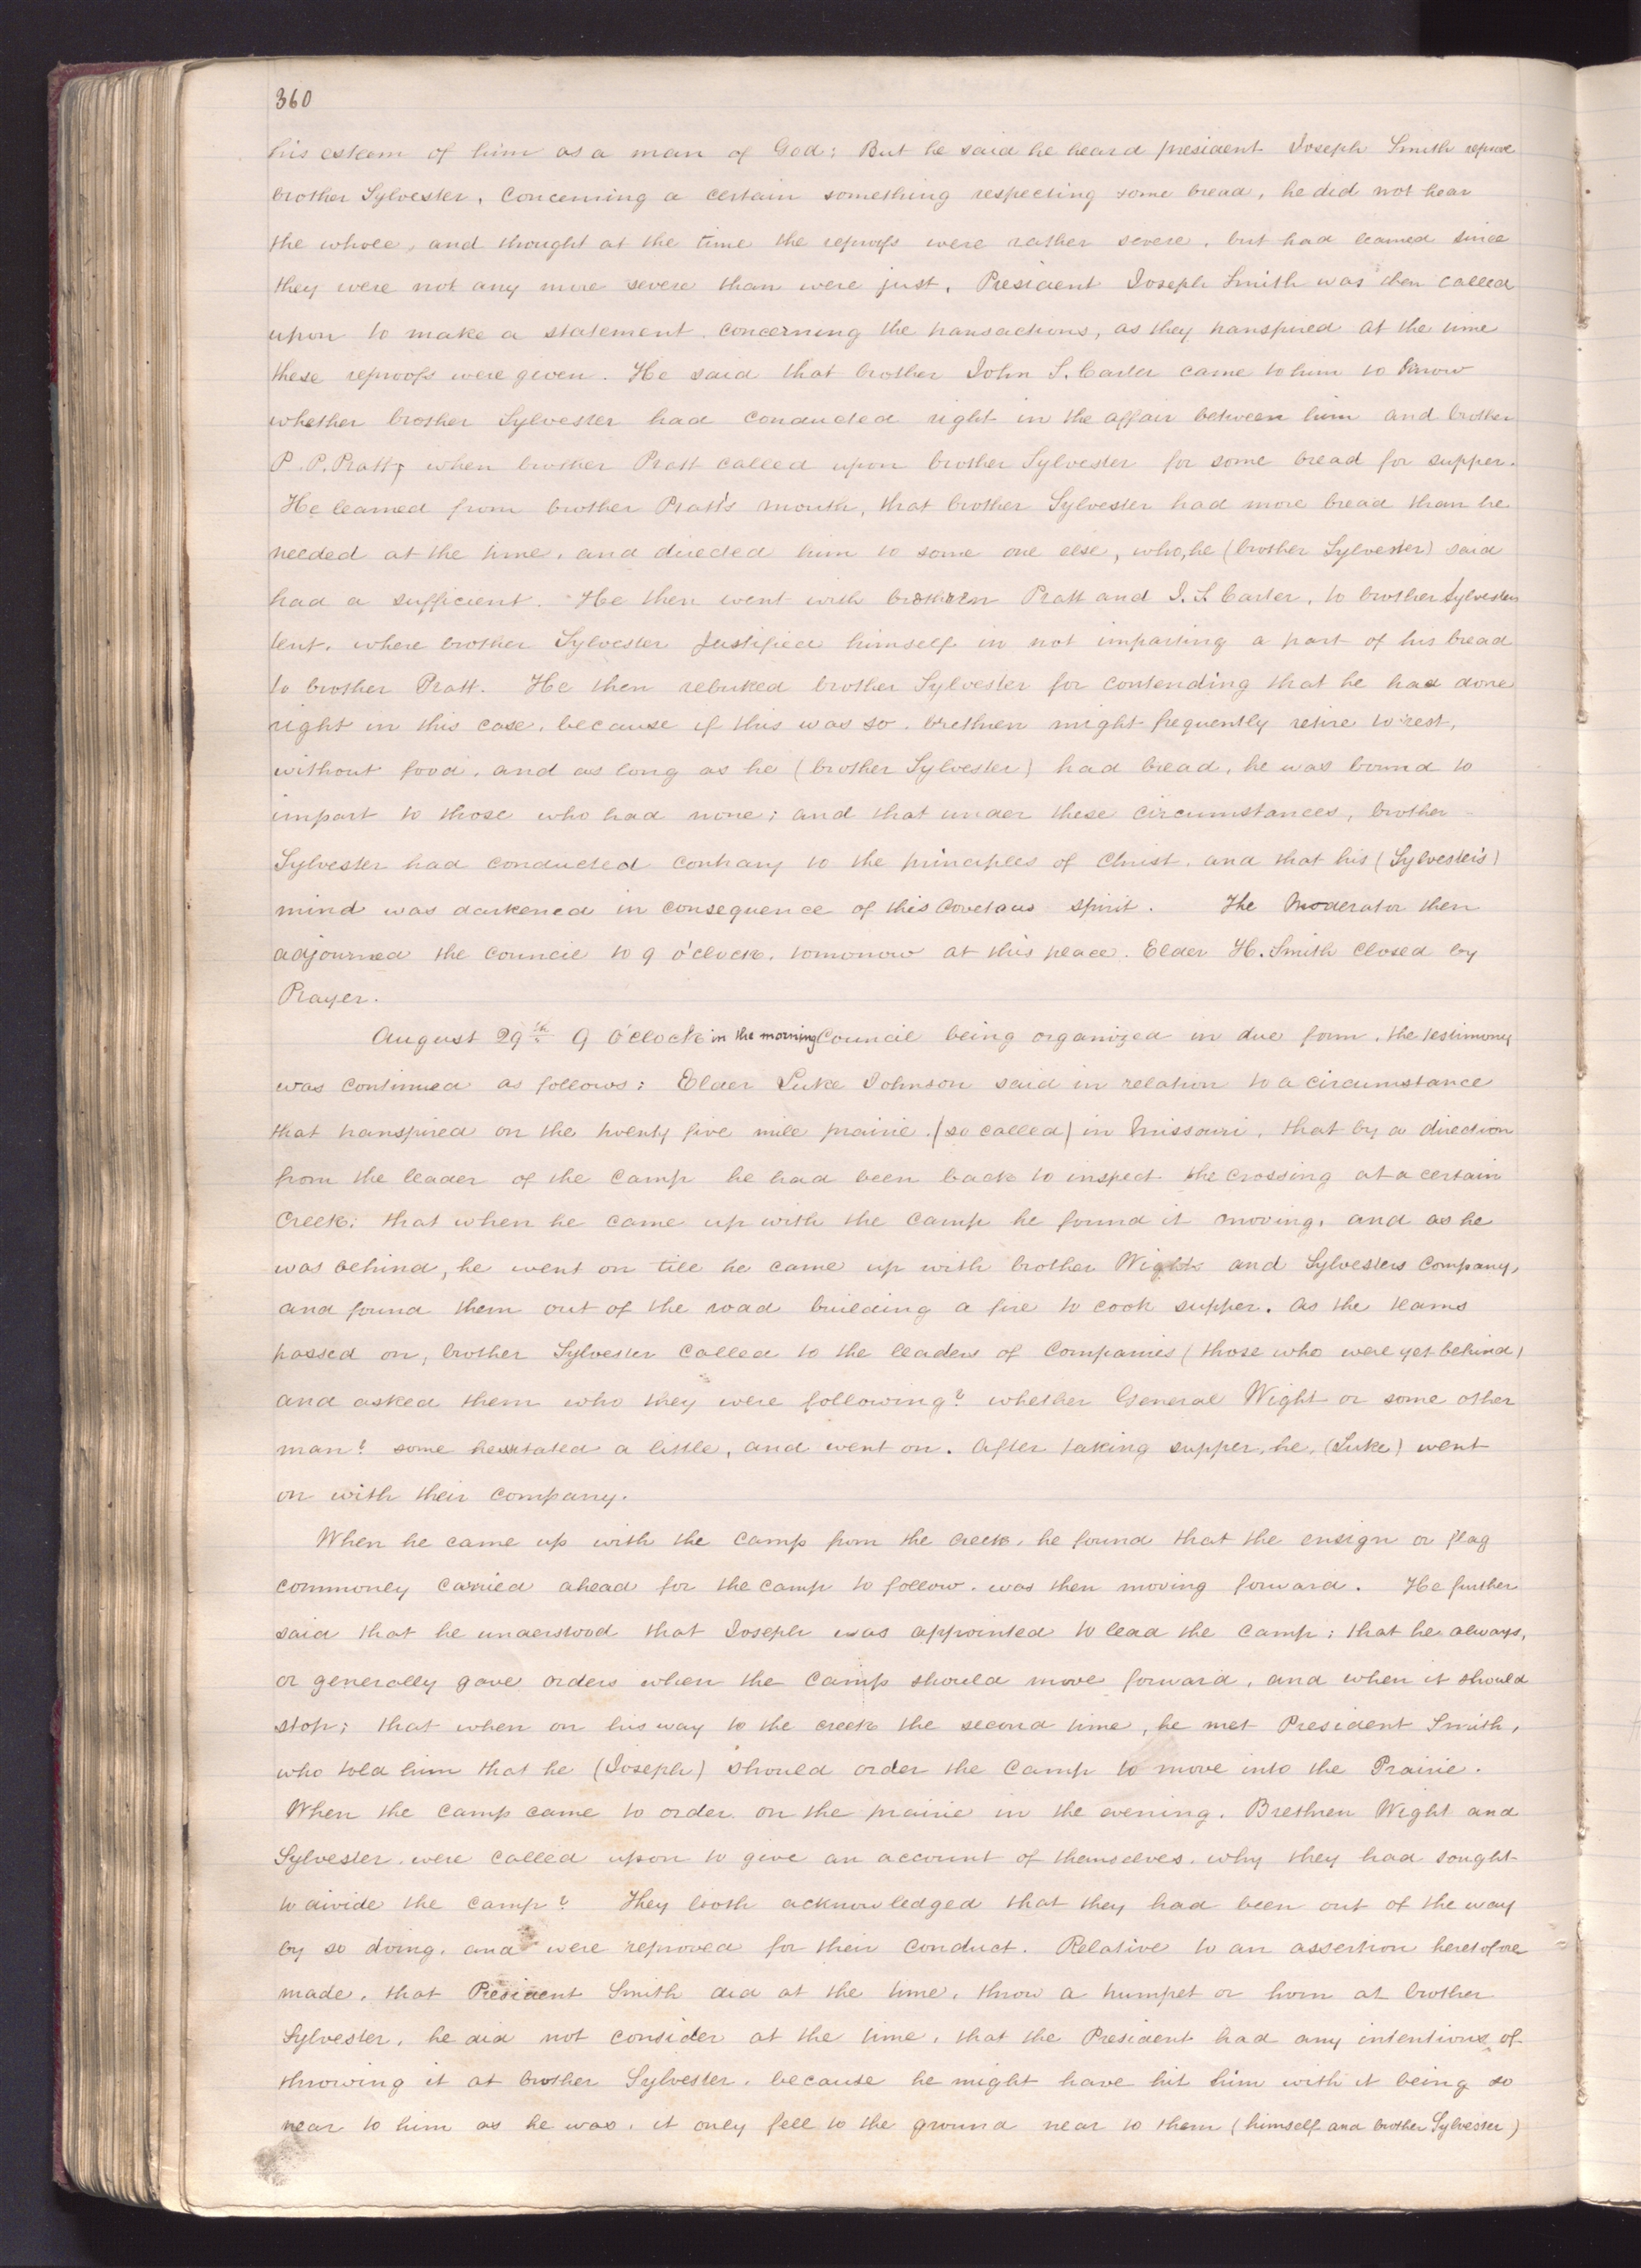 360
his esteem of him as a man of God; But he said he heard president Joseph Smith reprove
brother Sylvester, concerning a certain something respecting some bread, he did not hear
the whole, and thought at the time the reproofs were rather severe, but had learned since
they were not any more severe than were just. President Joseph Smith was then called
upon to make a statement concerning the transactions, as they transpired at the time
these reproofs were given. He said that brother John S. Carter came to him to know
whether brother Sylvester had conducted right in the affair between him and brother
P. P. Pratt, when brother Pratt called upon brother Sylvester for some bread for supper.
He learned from brother Pratt's mouth, that brother Sylvester had more bread than he
needed at the time, and directed him to some one else, who, he (brother Sylvester) said
had a sufficient. He then went with brethren Pratt and J. S. Carter, to brother Sylvesters
tent, where brother Sylvester justified himself in not imparting a part of his bread
to brother Pratt. He then rebuked brother Sylvester for contending that he had done
right in this case, because if this was so, brethren might frequently retire to rest,
without food, and as long as he (brother Sylvester) had bread, he was bound to
impart to those who had none; and that under these circumstances, brother
Sylvester had conducted contrary to the principles of Christ, and that his (Sylvester's)
mind was darkened in consequence of this covetous spirit. The Moderator then
adjourned the council to 9 o'clock, tomorrow at this place. Elder H. Smith closed by
Prayer.
August 29th 9 o'clock in the morning Council being organized in due form, the testimony
was continued as follows: Elder Luke Johnson said in relation to a circumstance
that transpired on the twenty five mile prairie (so called) in Missouri, that by a direction
from the leader of the camp he had been back to inspect the crossing at a certain
Creek; that when he came up with the camp he found it moving, and as he
was behind, he went on till he came up with brother Wights and Sylvesters company,
and found them out of the road building a fire to cook supper. As the teams
passed on, brother Sylvester called to the leaders of companies (those who were yet behind)
and asked them who they were following? whether General Wight or some other
man? some hesitated a little, and went on. After taking supper, he, (Luke) went
on with their company.
When he came up with the camp from the creek, he found that the ensign or flag
commonly carried ahead for the camp to follow, was then moving forward. He further
said that he understood that Joseph was appointed to lead the camp; that he always,
or generally gave orders when the camp should move forward, and when it should
stop; that when on his way to the creek the second time, he met President Smith,
who told him that he (Joseph) should order the camp to move into the Prairie.
When the camp came to order on the prairie in the evening, Brethren Wight and
Sylvester were called upon to give an account of themselves, why they had sought
to divide the camp? They both acknowledged that they had been out of the way
by so doing, and were reproved for their conduct. Relative to an assertion heretofore
made, that President Smith did at the time, throw a trumpet or horn at brother
Sylvester, he did not consider at the time, that the President had any intentions of
throwing it at brother Sylvester, because he might have hit him with it being so
near to him as he was, it only fell to the ground near to them (himself and brother Sylvester)